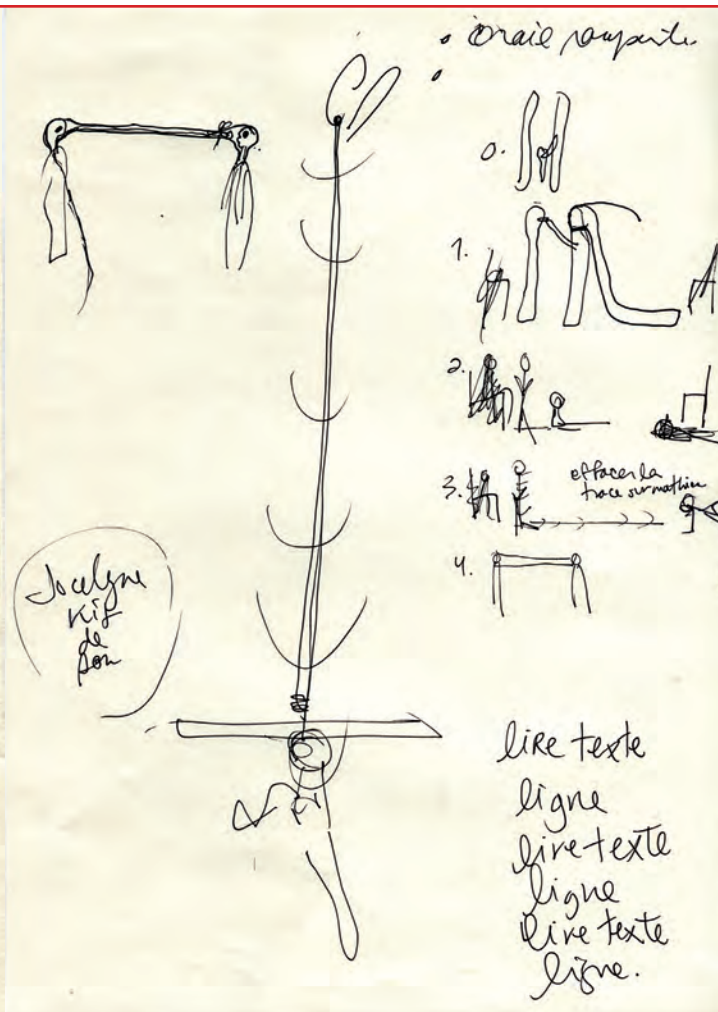 0.
1.
2.
3.
effacer la
trace sur mathieu
4.
Jocelyne
Kif
de
son
lire texte
ligne
lire texte
ligne
lire texte
ligne.